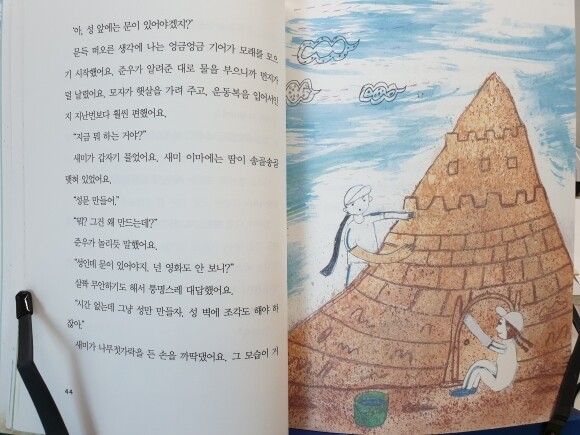 '아, 성 앞에는 문이 있어야겠지?'
문득 떠오른 생각에 나는 엉금엉금 기어가 모래를 모으
기 시작했어요. 준우가 알려준 대로 물을 부으니까 먼지가
덜 날렸어요. 모자가 햇살을 가려 주고, 운동복을 입어서인
지 지난번보다 훨씬 편했어요.
"지금 뭐 하는 거야?"
새미가 갑자기 물었어요. 새미 이마에는 땀이 송골송골
맺혀 있었어요.
"성문 만들어."
"뭐? 그건 왜 만드는데?"
준우가 놀리듯 말했어요.
"성인데 문이 있어야지, 넌 영화도 안 보니?"
살짝 무안하기도 해서 퉁명스레 대답했어요.
"시간 없는데 그냥 성만 만들자. 성 벽에 조각도 해야 하
잖아."
새미가 나무젓가락을 든 손을 까딱댔어요. 그 모습이 거
44